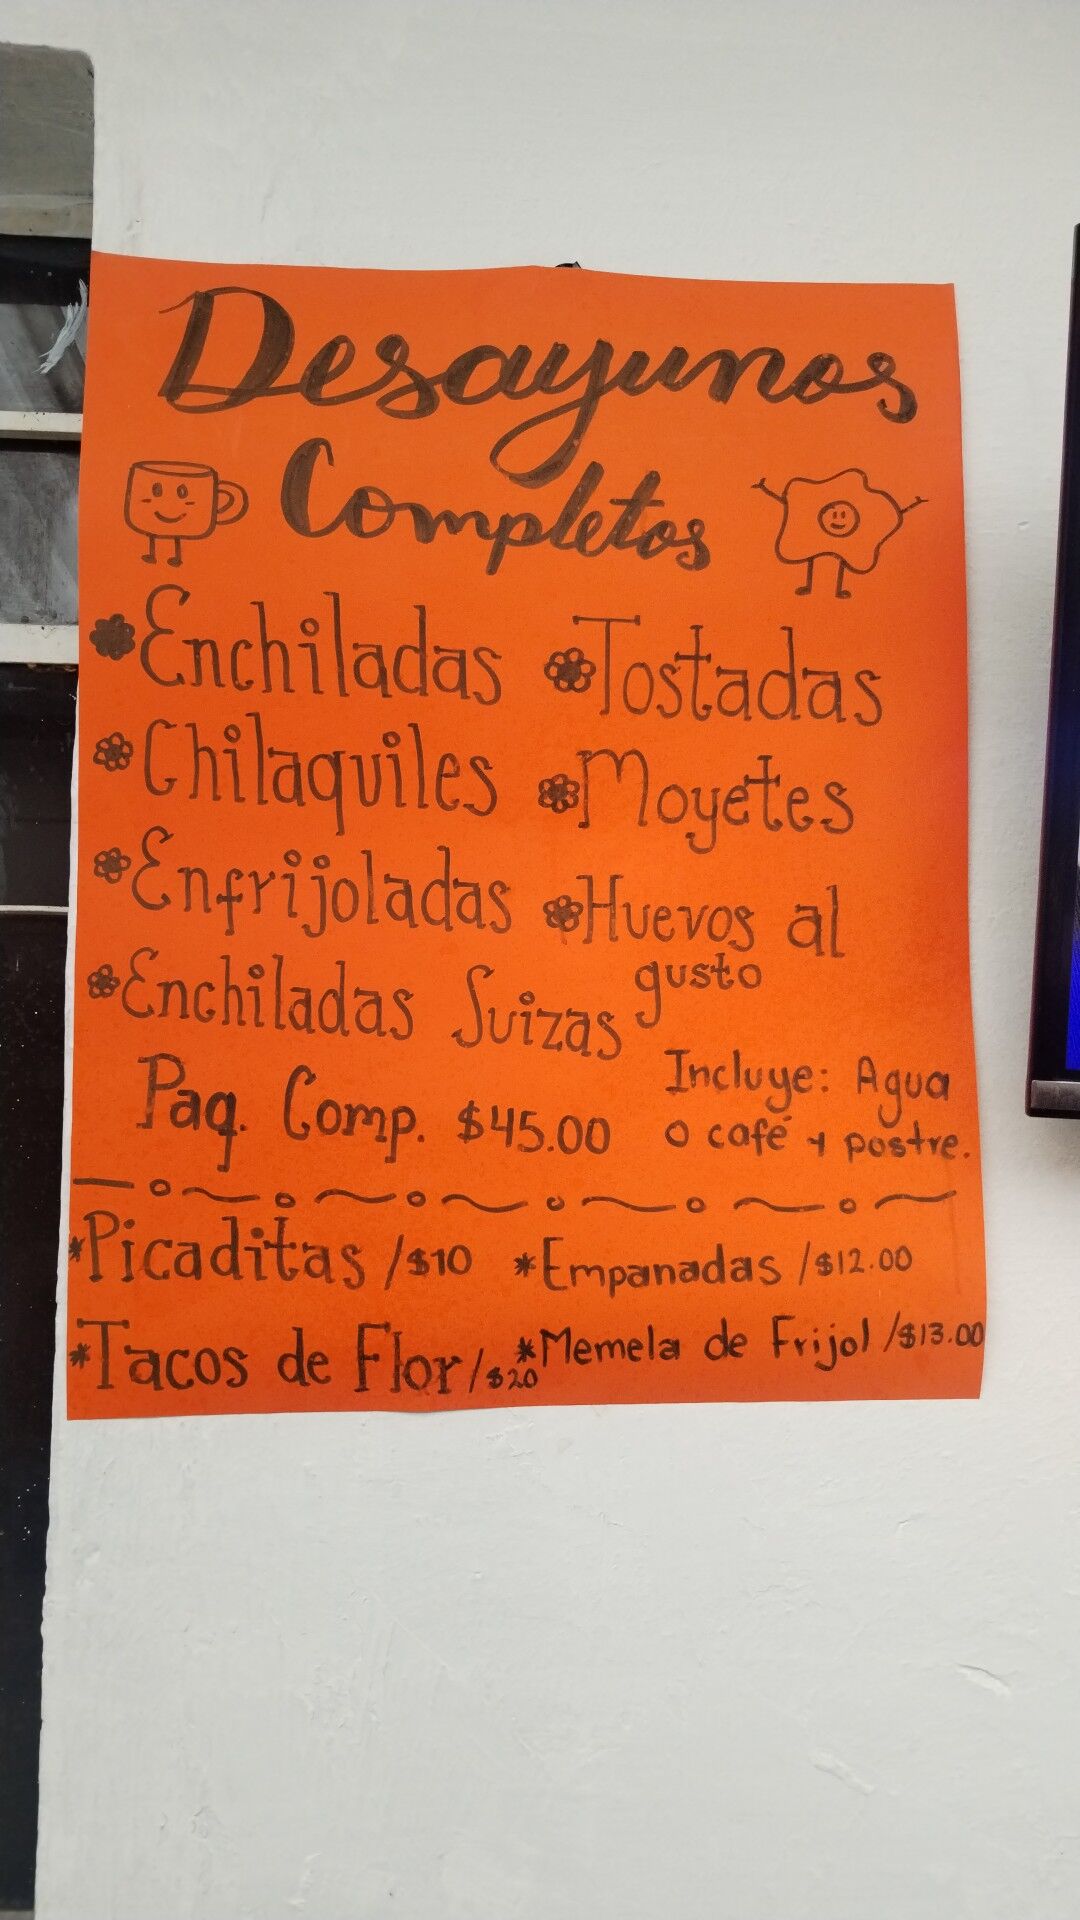 Desayunos
Completos
Enchiladas
Tostadas
Chilaquiles
Moyetes
Enfrijoladas
Huevos al
gusto
Enchiladas Suizas
Paq. Comp. $45.00
Incluye: Agua
o café y postre.
*Picaditas /$10
*Empanadas /$12.00
*Tacos de Flor /$20
*Memela de Frijol /$13.00